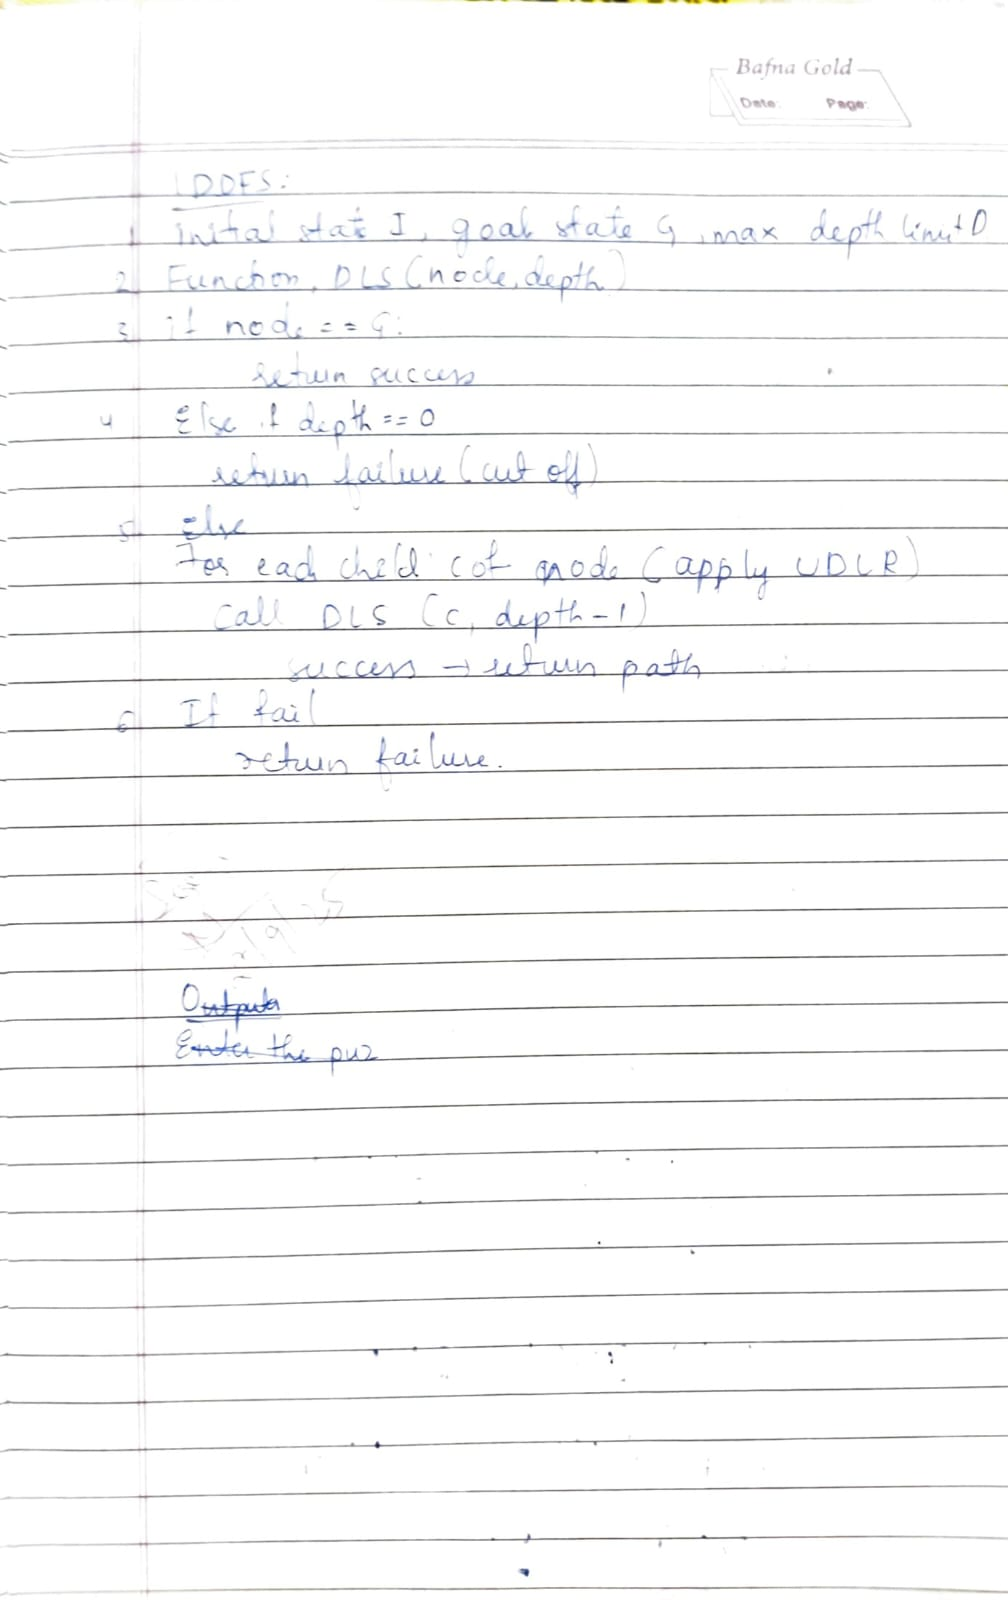 Bafna Gold
Date: Page:
IDDFS:
1 inital state I, goal state G, max depth limit D
2 Function, DLS (node, depth)
3 if node == G:
return success
4 Else if depth == 0
return failure (cut off)
5 Else
For each child c of node (apply UDLR)
Call DLS (c, depth-1)
success → return path
6 If fail
return failure.
Output
Enter the puz